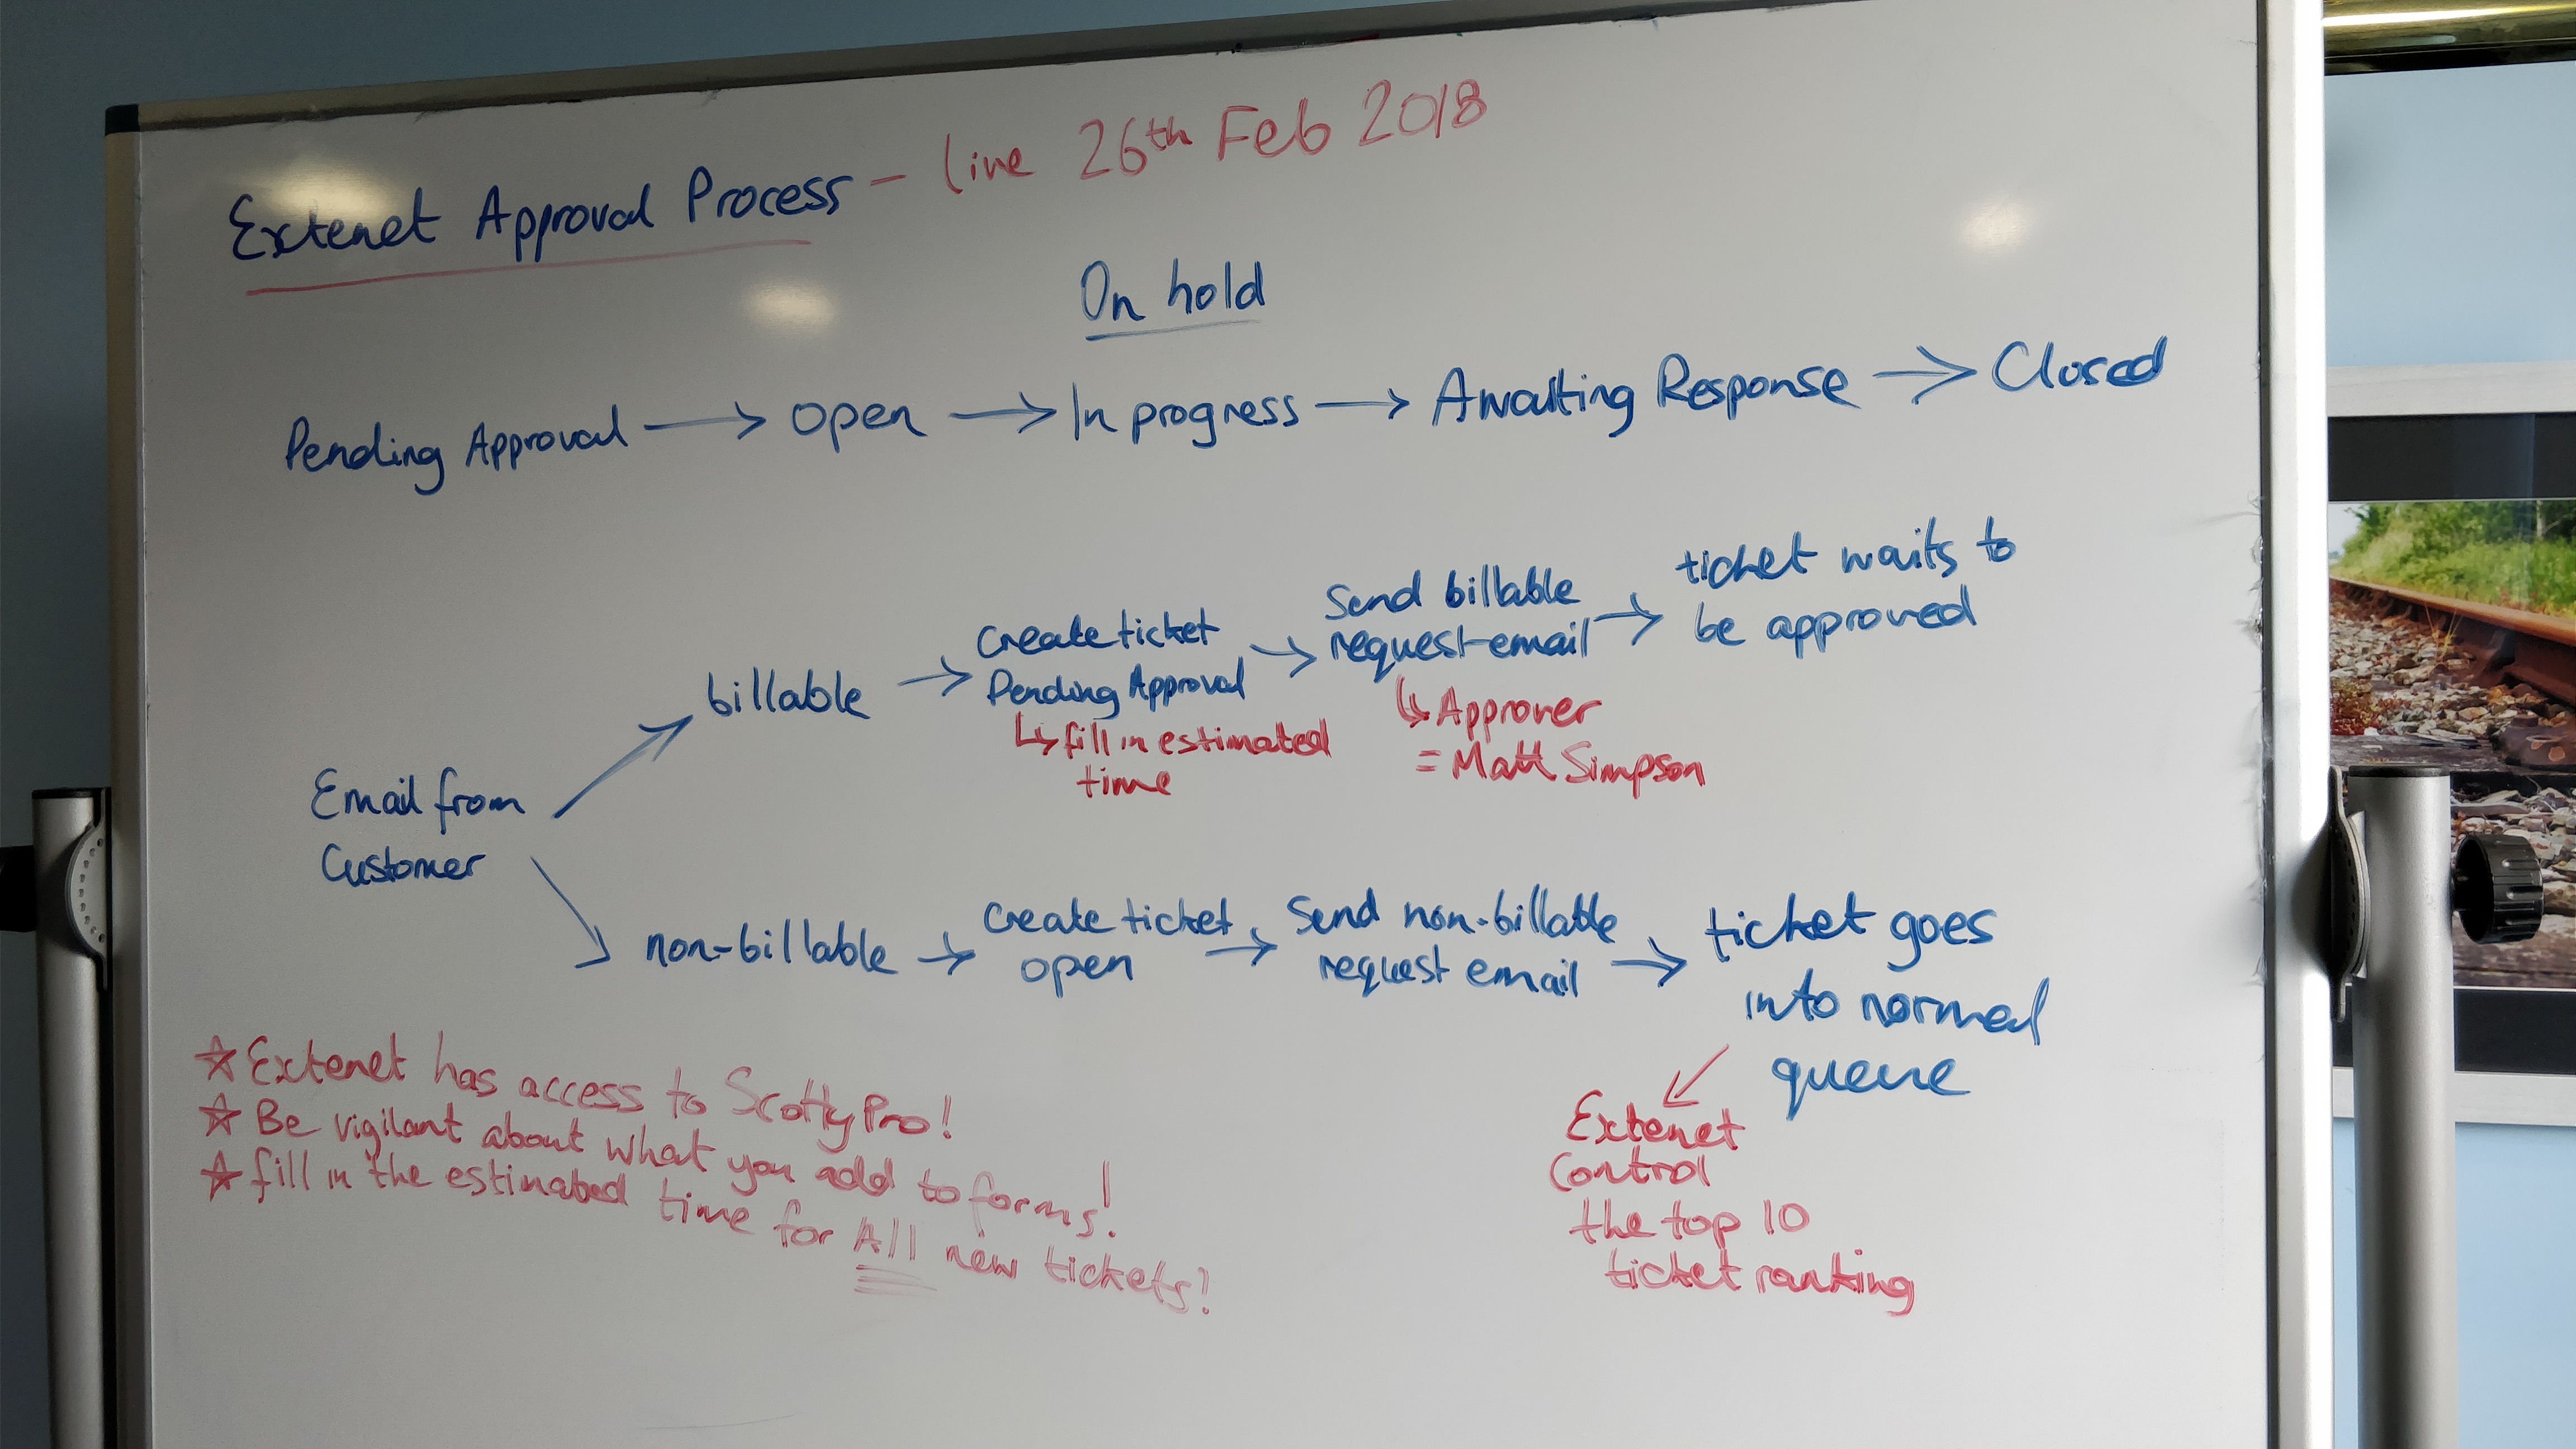 Extenet Approval Process - live 26th Feb 2018
On hold
Pending Approval → open → In progress → Awaiting Response → Closed
Email from
Customer
billable →
Create ticket
Pending Approval
↳ fill in estimated
time
→
Send billable
request email
↳ Approver
= Matt Simpson
→
ticket waits to
be approved
non-billable →
Create ticket
open
→
Send non-billable
request email
→
ticket goes
into normal
queue
Extenet
Control
the top 10
ticket ranking
☆ Extenet has access to ScottyPro!
☆ Be vigilant about what you add to forms!
☆ fill in the estimated time for All new tickets!